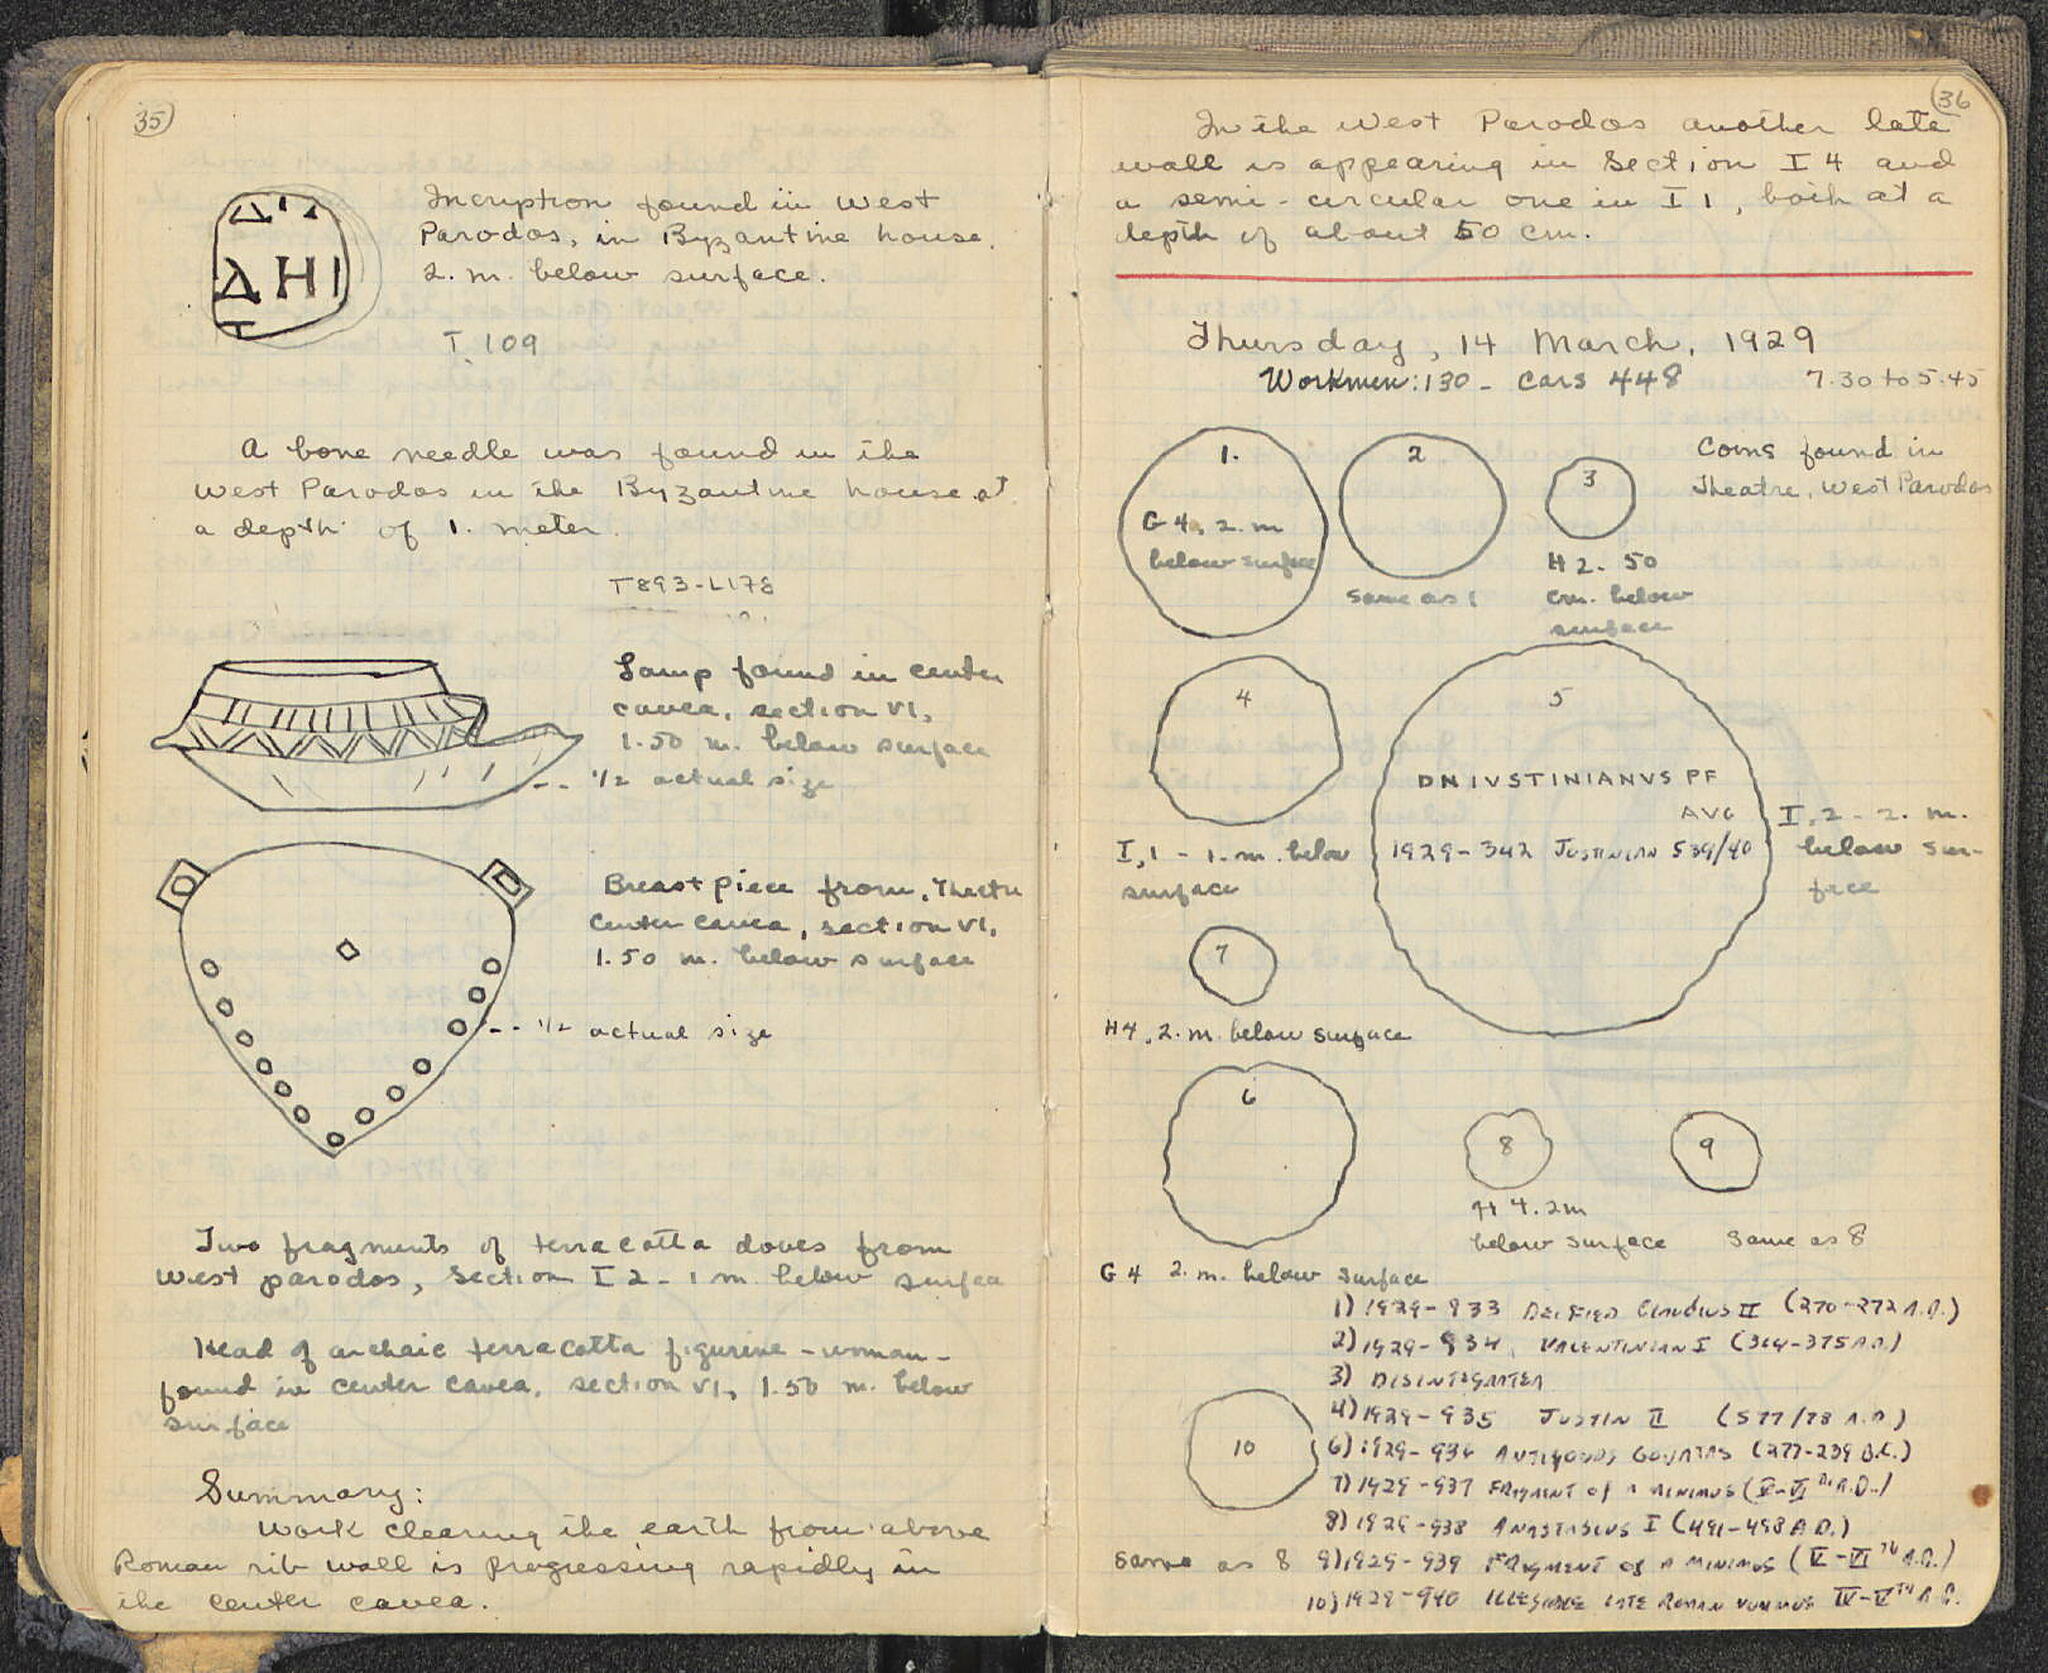 35
Δ
ΔΗΙ
Incription found in West
Parodos, in Byzantine house.
2. m. below surface.
T. 109
A bone needle was found in the
West Parodos in the Byzantine house at
a depth of 1. meter.
T893-L178
Lamp found in center
cavea, section VI,
1.50 m. below surface
1/2 actual size
Breast piece from, Theatre
Center cavea, section VI,
1.50 m. below surface
1/2 actual size
Two fragments of terra cotta doves from
West parodos, Section I 2 - 1 m. below surface
Head of archaic terra cotta figurine - woman -
found in center cavea, section VI, 1.50 m. below
surface
Summary:
Work clearing the earth from above
Roman rib wall is progressing rapidly in
the center cavea.
36
In the West Parodos another late
wall is appearing in Section I 4 and
a semi-circular one in I 1, both at a
depth of about 50 cm.
Thursday, 14 March, 1929
Workmen: 130 - Cars 448 7.30 to 5.45
Coins found in
Theatre, West Parodos
1.
G 4, 2. m
below surface
2
Same as 1
3
H 2 - 50
cm. below
surface
4
I, 1 - 1. m. below
surface
5
DN IVSTINIANVS PF
AVG
1929 - 342 JUSTINIAN 539/40
I, 2 - 2. m.
below sur-
face
7
H 4, 2. m. below surface
6
G 4 2. m. below surface
8
H 4. 2m
below surface
9
Same as 8
10
Same as 8
1) 1929 - 933 DEIFIED CLAUDIUS II (270-272 A.D.)
2) 1929 - 934, VALENTINIAN I (364-375 A.D.)
3) DISINTEGRATED
4) 1929 - 935 JUSTIN II (577/78 A.D.)
6) 1929 - 936 ANTIGONUS GONATAS (277-239 B.C.)
7) 1929 - 937 FRAGMENT OF A MINIMUS (V-VI A.D.)
8) 1929 - 938 ANASTASIUS I (491-498 A.D.)
9) 1929 - 939 FRAGMENT OF A MINIMUS (V-VI TH A.D.)
10) 1929 - 940 ILLEGIBLE LATE ROMAN NUMMUS IV-V TH A.D.